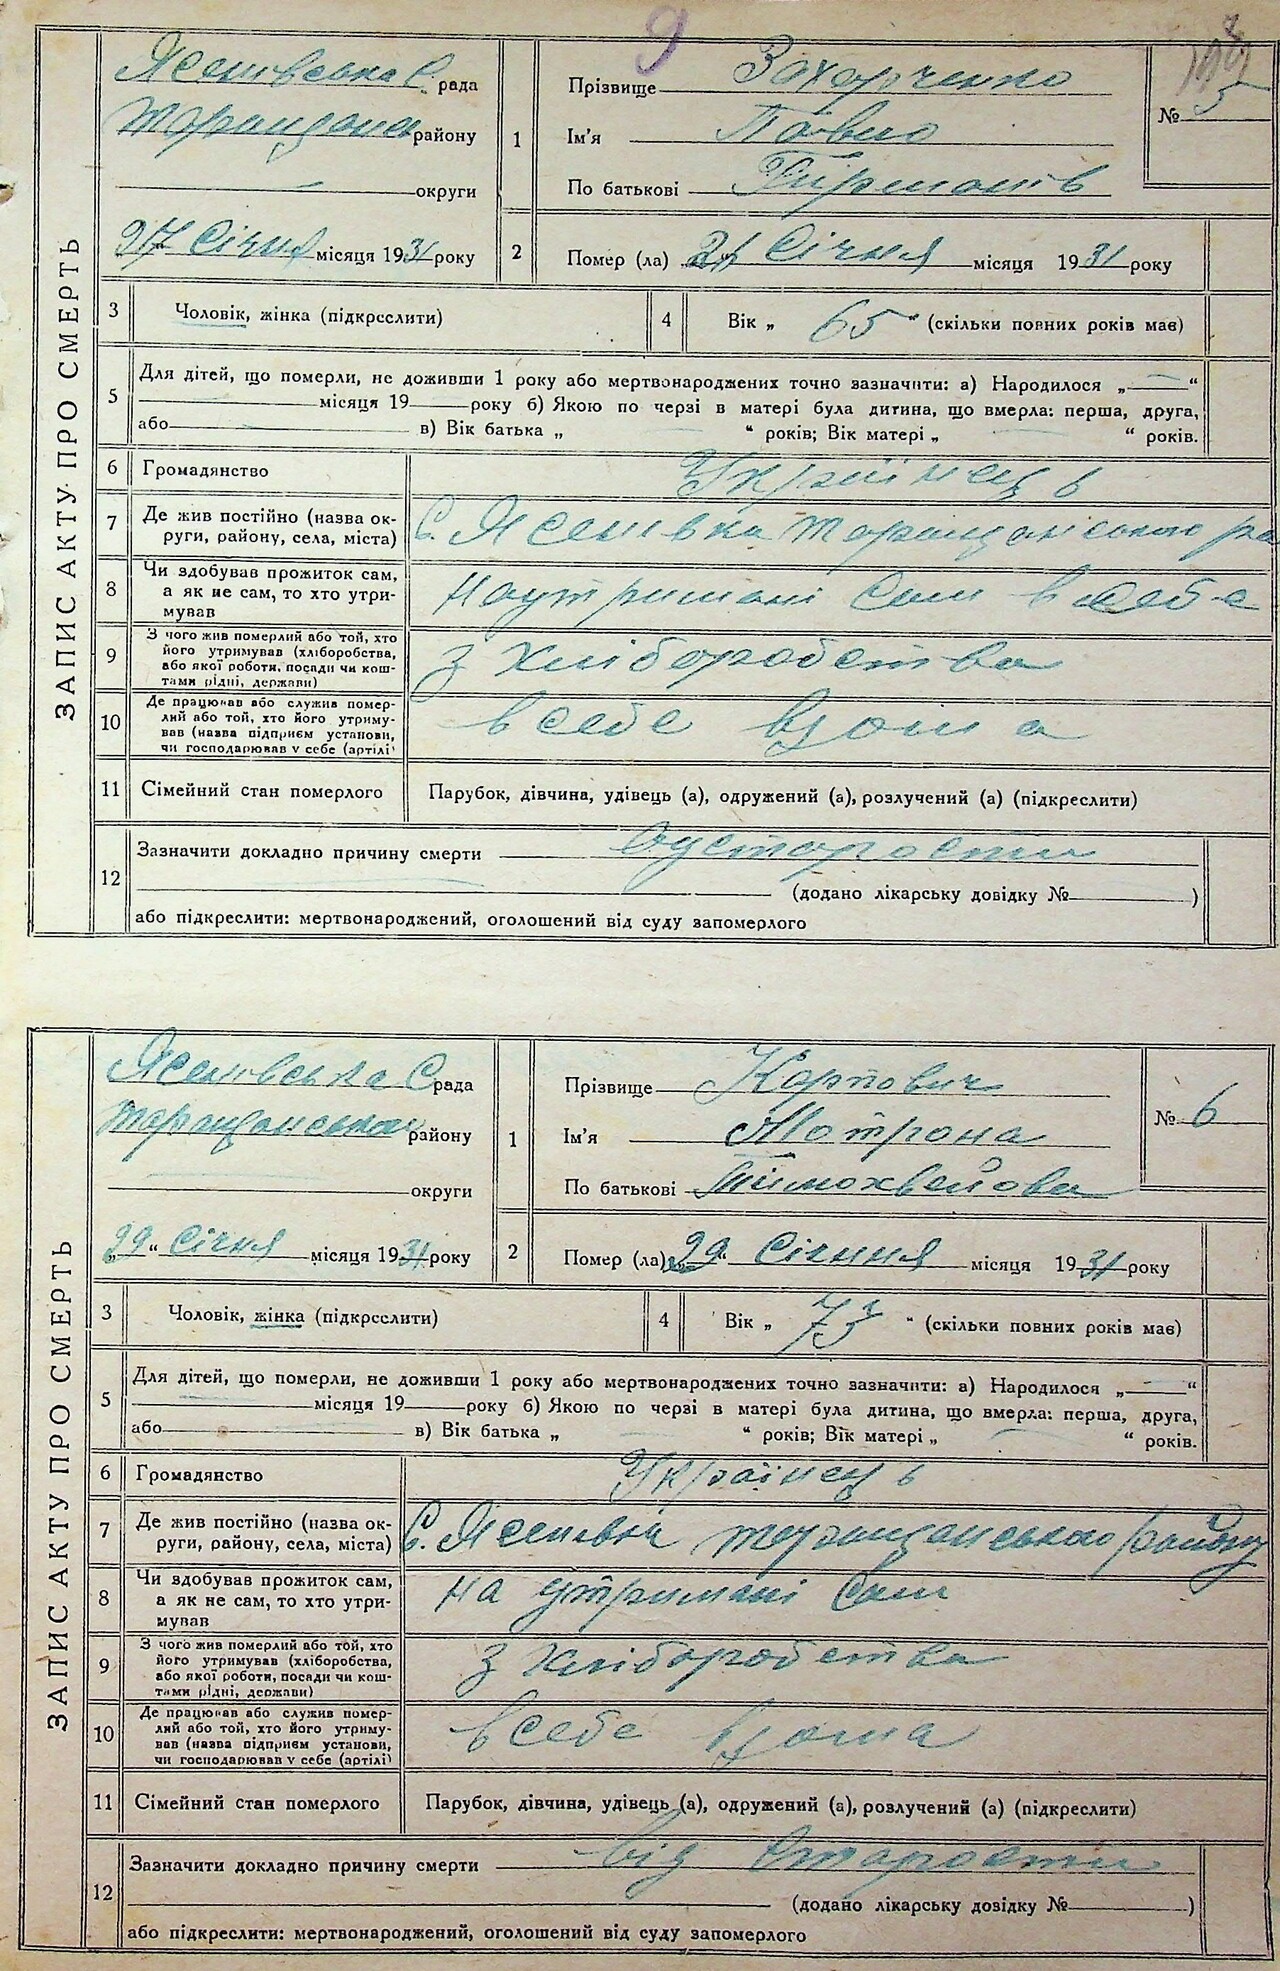 9
ЗАПИС АКТУ ПРО СМЕРТЬ
Ясенівська С. рада
району
округи
27 Січня місяця 1931 року
1
Прізвище Захарченко
Ім'я Павло
По батькові
№ 5
2 Помер (ла) Січня місяця 1931 року
3 Чоловік, жінка (підкреслити)
4 Вік „ 65 “ (скільки повних років має)
5 Для дітей, що померли, не доживши 1 року або мертвонароджених точно зазначити: а) Народилося „ “
місяця 19 року б) Якою по черзі в матері була дитина, що вмерла: перша, друга,
або в) Вік батька „ “ років; Вік матері „ “ років.
6 Громадянство Українець
7 Де жив постійно (назва ок-
руги, району, села, міста) С. Ясенівка Таращанського ра
8 Чи здобував прожиток сам,
а як не сам, то хто утри-
мував
наутримані Сам в себе
9 З чого жив померлий або той, хто
його утримував (хліборобства,
або якої роботи, посади чи кош-
тами рідні, держави)
з хліборобства
10 Де працював або служив помер-
лий або той, хто його утриму-
вав (назва підприєм установи,
чи господарював у себе (артілі)
в себе вдома
11 Сімейний стан померлого Парубок, дівчина, удівець (а), одружений (а), розлучений (а) (підкреслити)
12 Зазначити докладно причину смерти
(додано лікарську довідку № )
або підкреслити: мертвонароджений, оголошений від суду запомерлого
ЗАПИС АКТУ ПРО СМЕРТЬ
Ясенівська С рада
району
округи
„29“ Січня місяця 1931 року
1
Прізвище Карпович
Ім'я Мотрона
По батькові Тимохвейова
№ 6
2 Помер (ла) „29“ Січння місяця 1931 року
3 Чоловік, жінка (підкреслити)
4 Вік „ 73 “ (скільки повних років має)
5 Для дітей, що померли, не доживши 1 року або мертвонароджених точно зазначити: а) Народилося „ “
місяця 19 року б) Якою по черзі в матері була дитина, що вмерла: перша, друга,
або в) Вік батька „ “ років; Вік матері „ “ років.
6 Громадянство Українець
7 Де жив постійно (назва ок-
руги, району, села, міста) С. Ясенівка Таращанського району
8 Чи здобував прожиток сам,
а як не сам, то хто утри-
мував
на утримані Сам
9 З чого жив померлий або той, хто
його утримував (хліборобства,
або якої роботи, посади чи кош-
тами рідні, держави)
з хліборобства
10 Де працював або служив помер-
лий або той, хто його утриму-
вав (назва підприєм установи,
чи господарював у себе (артілі)
в себе вдома
11 Сімейний стан померлого Парубок, дівчина, удівець (а), одружений (а), розлучений (а) (підкреслити)
12 Зазначити докладно причину смерти від Старости
(додано лікарську довідку № )
або підкреслити: мертвонароджений, оголошений від суду запомерлого